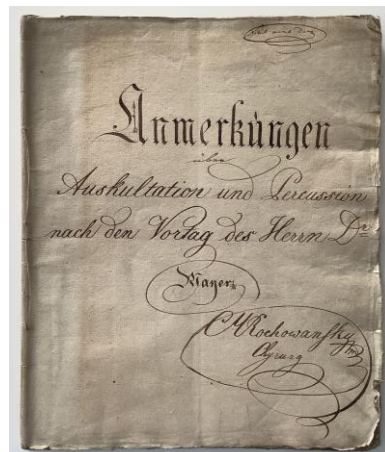 Anmerkungen
über
Auskultation und Percussion
nach den Vortag des Herrn Dr
Mayer
Chyrurg